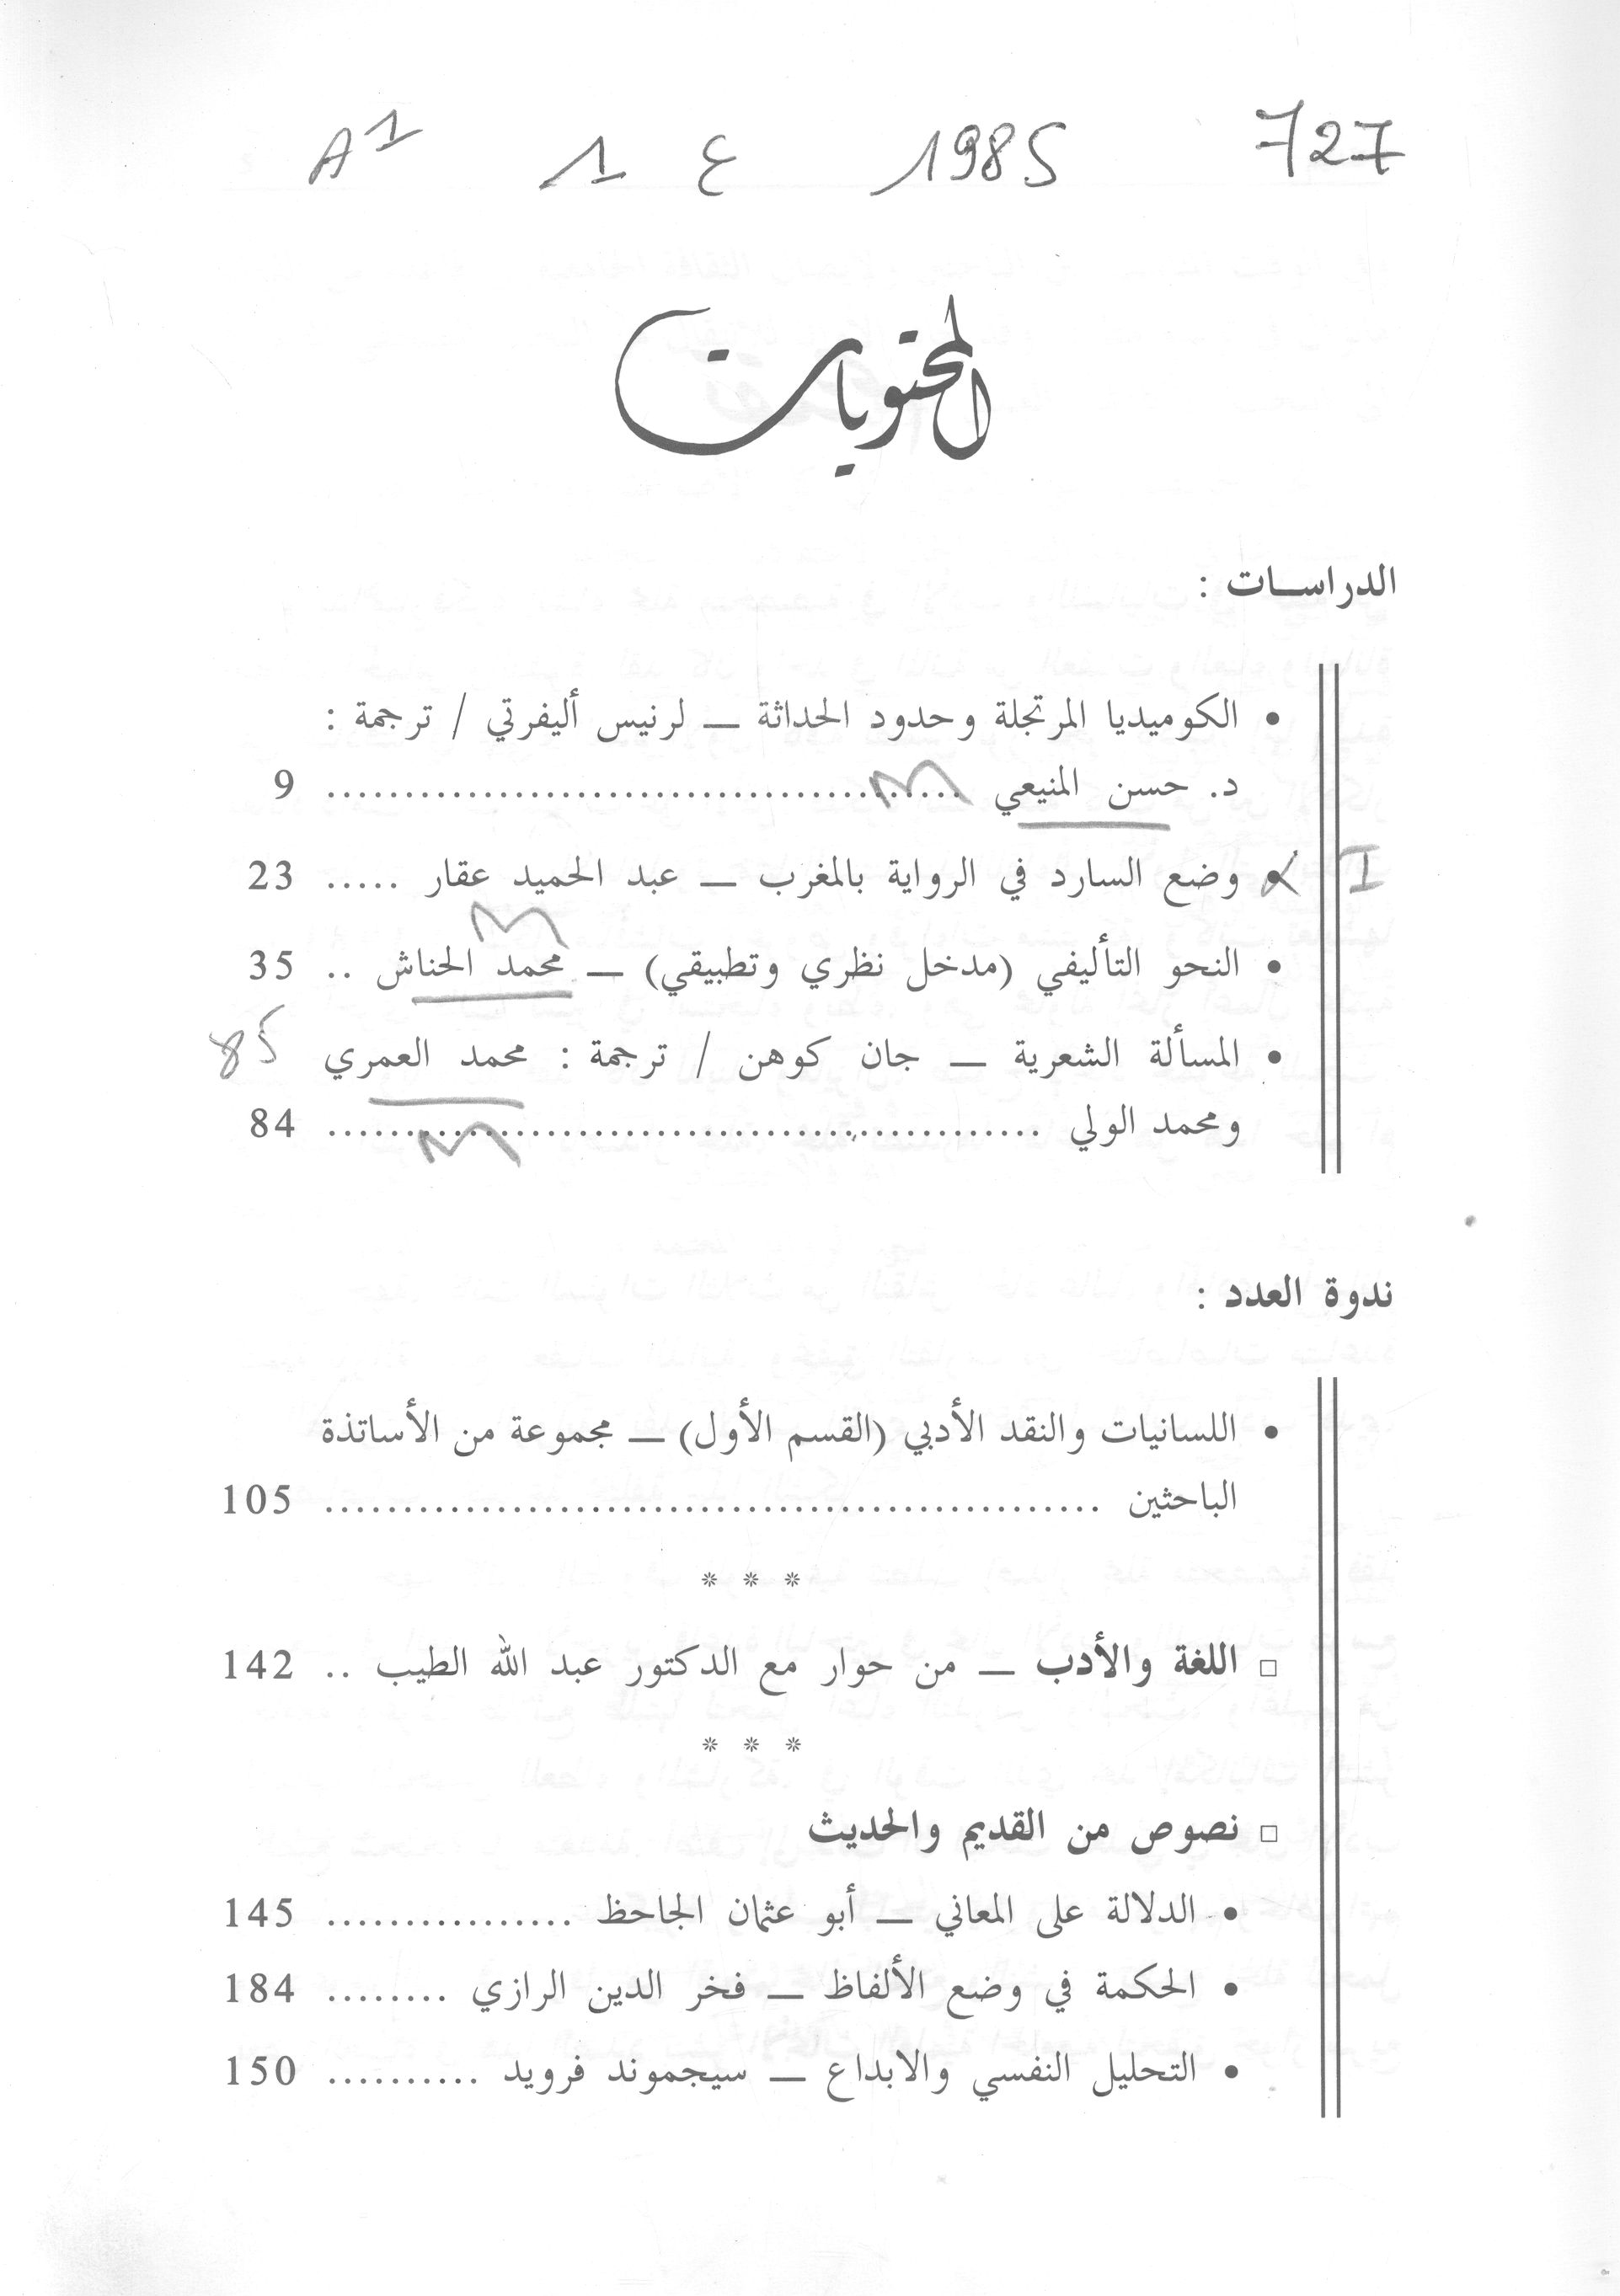 727 1985 ع 1 A1
المحتويات
الدراسات :
• الكوميديا المرتجلة وحدود الحداثة — لرنيس أليفرتي / ترجمة :
د. حسن المنيعي ........................................ 9
I • وضع السارد في الرواية بالمغرب — عبد الحميد عقار ..... 23
• النحو التأليفي (مدخل نظري وتطبيقي) — محمد الحناش .. 35
• المسألة الشعرية — جان كوهن / ترجمة : محمد العمري 85
ومحمد الولي .............................................. 84
ندوة العدد :
• اللسانيات والنقد الأدبي (القسم الأول) — مجموعة من الأساتذة
الباحثين .................................................. 105
* * *
□ اللغة والأدب — من حوار مع الدكتور عبد الله الطيب .. 142
* * *
□ نصوص من القديم والحديث
• الدلالة على المعاني — أبو عثمان الجاحظ ................ 145
• الحكمة في وضع الألفاظ — فخر الدين الرازي ........ 184
• التحليل النفسي والابداع — سيجموند فرويد .......... 150